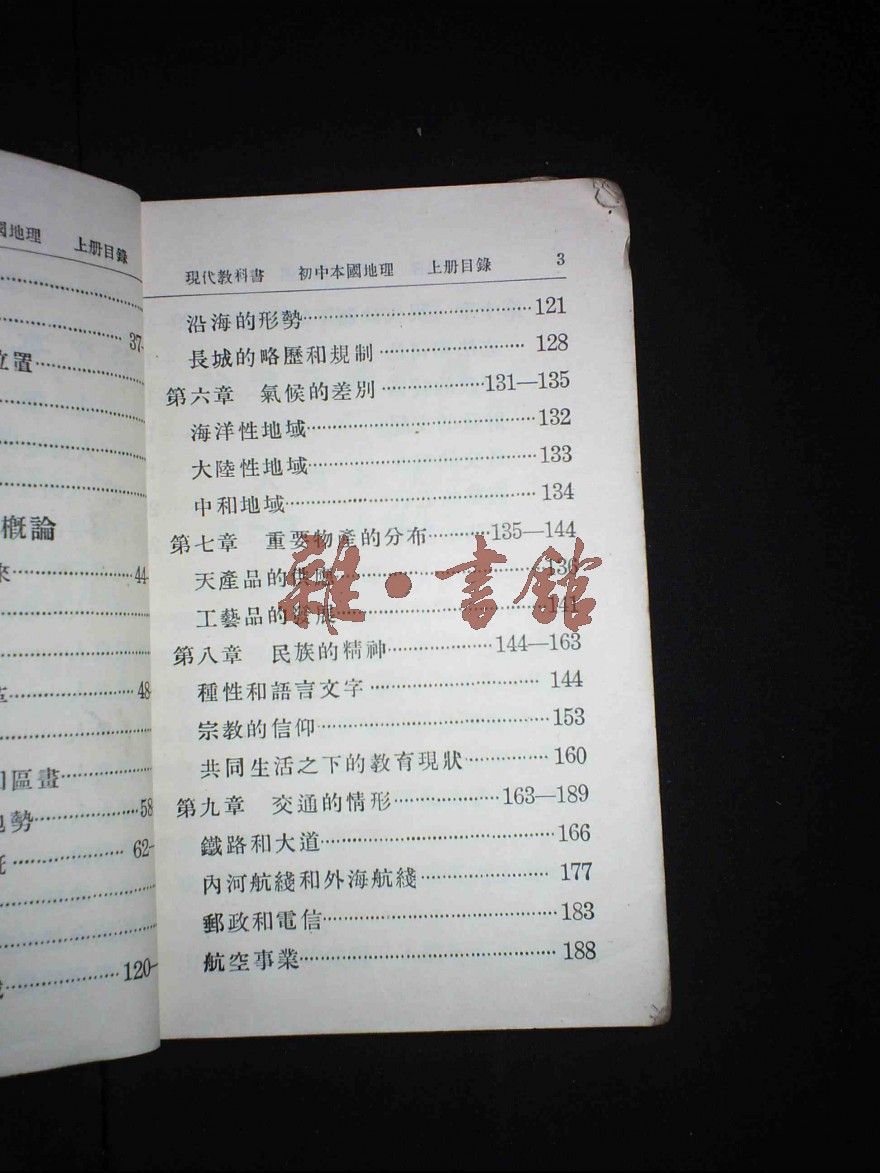 國地理 上册目錄
37-
位置
概論
來 44-
48-
和區畫
地勢 58
62-
120-
現代教科書 初中本國地理 上册目錄 3
沿海的形勢 121
長城的略歷和規制 128
第六章 氣候的差別 131—135
海洋性地域 132
大陸性地域 133
中和地域 134
第七章 重要物產的分布 135—144
天產品的供應 136
工藝品的發展 141
第八章 民族的精神 144—163
種性和語言文字 144
宗教的信仰 153
共同生活之下的教育現狀 160
第九章 交通的情形 163—189
鐵路和大道 166
內河航綫和外海航綫 177
郵政和電信 183
航空事業 188
雜·書館